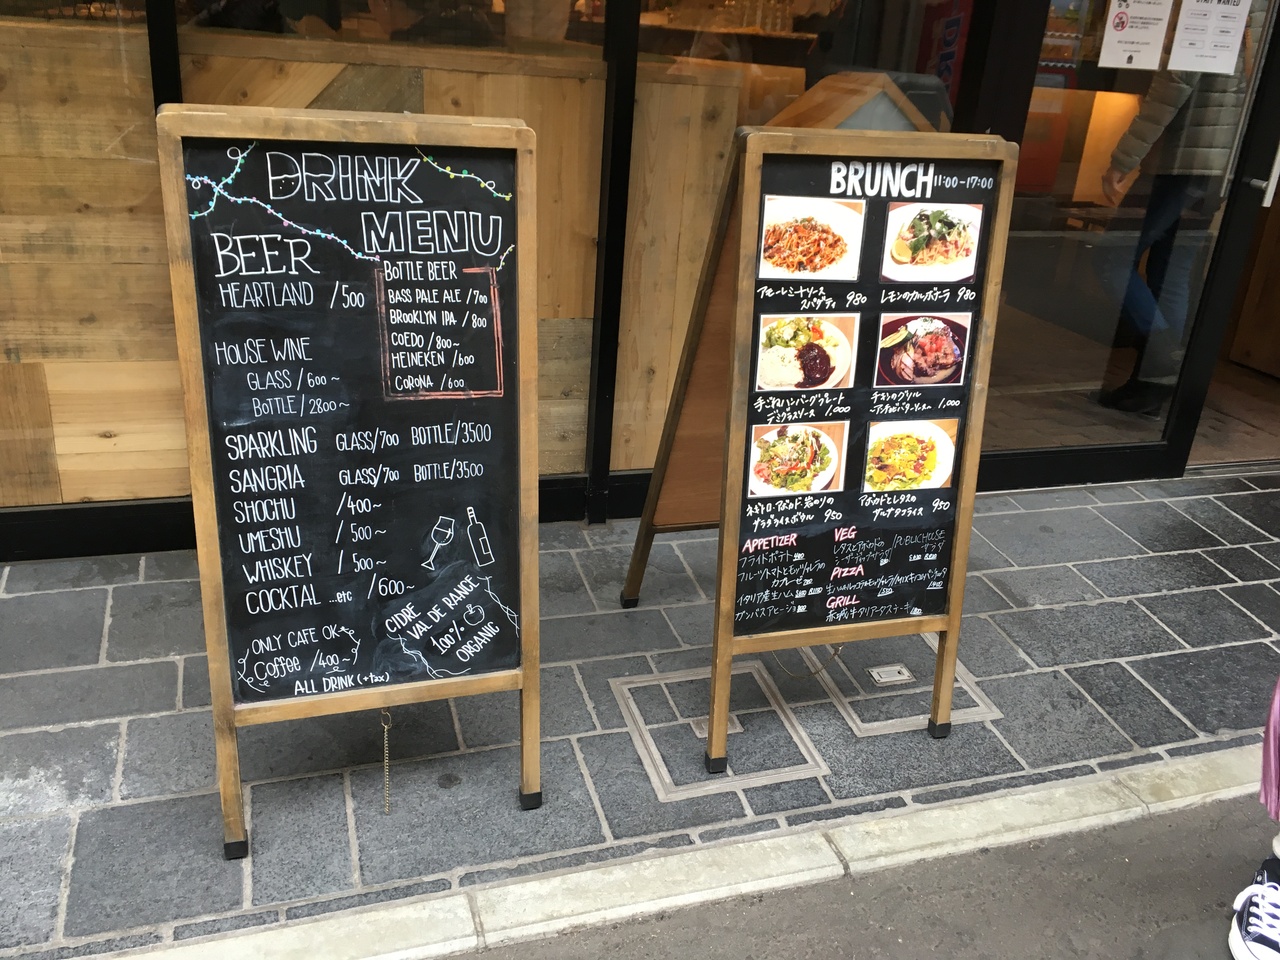 DRINK
MENU
BEER
HEARTLAND /500
BOTTLE BEER
BASS PALE ALE /700
BROOKLYN IPA /800
COEDO /800~
HEINEKEN /600
CORONA /600
HOUSE WINE
GLASS /600~
BOTTLE /2800~
SPARKLING GLASS/700 BOTTLE/3500
SANGRIA GLASS/700 BOTTLE/3500
SHOCHU /400~
UMESHU /500~
WHISKEY /500~
COCKTAL ...etc /600~
CIDRE
VAL DE RANCE
100%
ORGANIC
ONLY CAFE OK
Coffee /400~
ALL DRINK (+tax)
BRUNCH 11:00-17:00
スパゲティ 980
レモンのカルボナーラ 980
手ごねハンバーグプレート
デミグラスソース 1,000
チキンのグリル
1,000
ネギトロ・アボカド・岩のりの
サラダライスボウル 950
アボカドとレタスの
950
APPETIZER
フライドポテト
フルーツトマトとモッツァレラの
カプレーゼ
イタリア産生ハム
ガンバスアヒージョ
VEG
レタスとアボカドの
シーザーサラダ
PUBLIC HOUSE
サラダ
PIZZA
GRILL